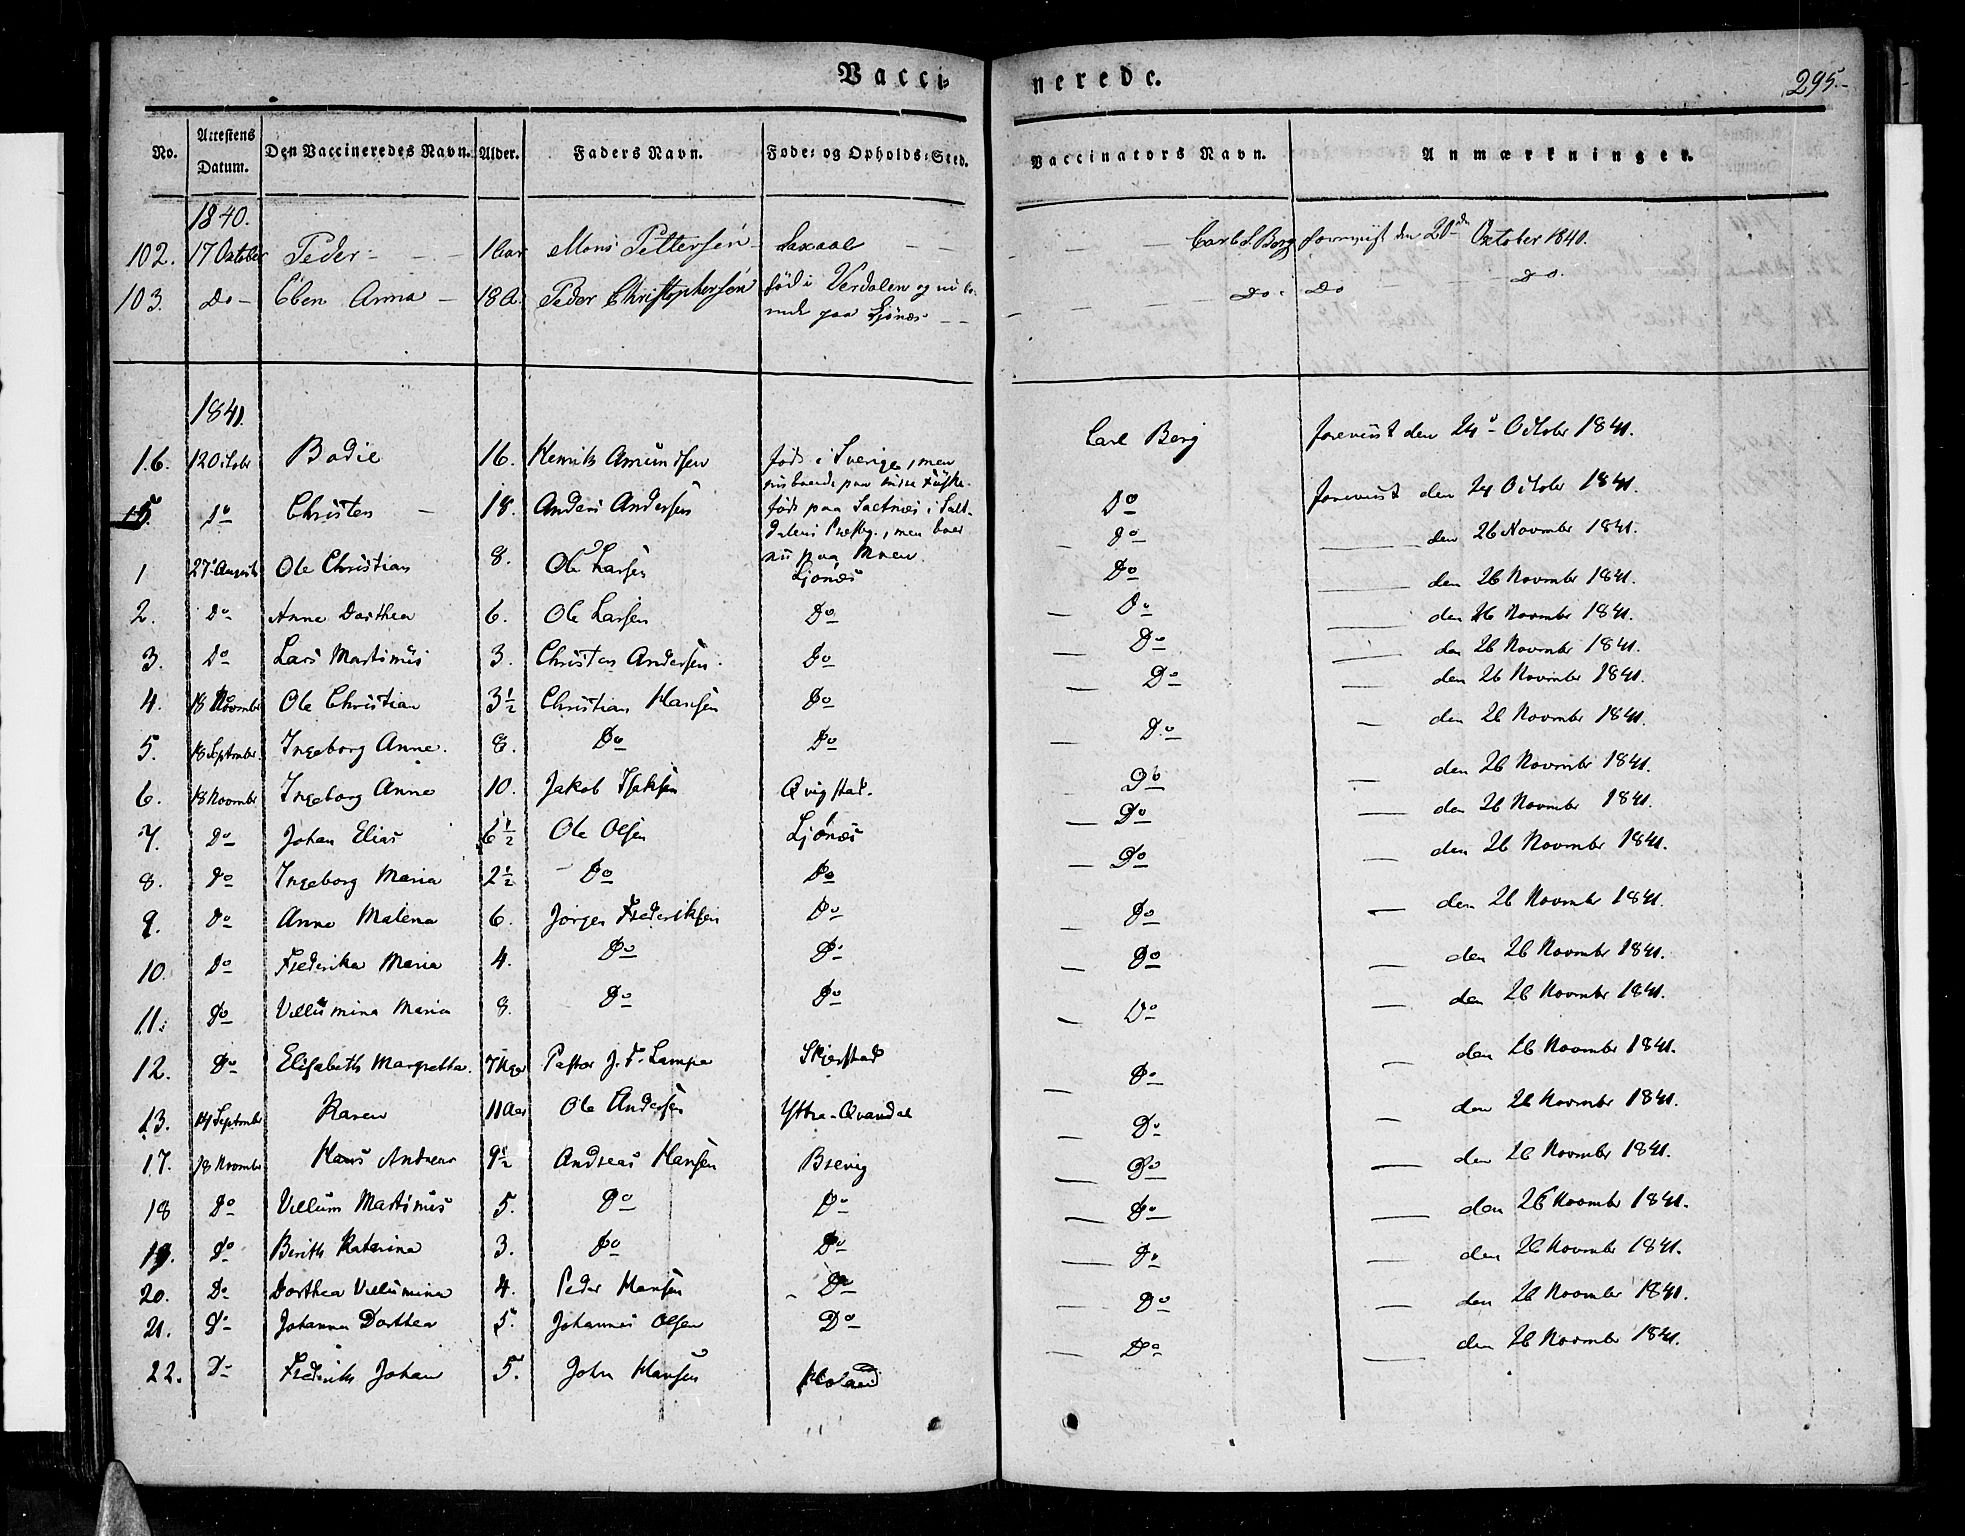 Vaccinerede.
295.
No. Attestens Datum. Den Vaccineredes Navn. Alder. Faders Navn. Føde- og Opholds-Sted. Vaccinators Navn. Anmærkninger.
1840.
102. 17 October Peder - 1 Aar Mons Pettersen Saxaae - Carl S Berg forevist den 20de October 1840.
103. Do - Eben Anna - 18 A. Peder Christophersen fød i Verdalen og nu bo- Do Do Do
ende paa Ljönæs
1841.
16. 12 October Bodie 16. Henrik Amundsen født i Sverige, men Carl Berg foreviist den 24 October 1841.
nuboende paa
15. Do Christen - 18. Anders Andersen født paa Saetnæs i Salt- Do foreviist den 24 October 1841.
dalens Præstg., men boer
nu paa Moen.
1 27 August Ole Christian 8. Ole Larsen Ljönæs Do den 26 November 1841.
2. Do Anne Dorthea 6. Ole Larsen Do Do den 26 November 1841.
3. Do Lars Martinus 3. Christen Andersen. Do Do den 26 November 1841.
4. 18 November Ole Christian 3½ Christian Hansen Do Do den 26 November 1841.
5. 18 September Ingeborg Anne. 8. Do Do Do den 26 November 1841.
6. 18 November Ingeborg Anne 10. Jakob Isaksen Qvigstad. Do den 26 November 1841.
7. Do Johan Elias 6½ Ole Olsen Ljönæs Do den 26 November 1841.
8. Do Ingeborg Maria 2½ Do Do Do den 26 November 1841.
9. Do Anne Malena 6. Jörgen Frederiksen Do Do den 26 November 1841.
10. Do Frederika Maria 4. Do Do Do den 26 November 1841.
11. Do Villumina Maria 8. Do Do Do den 26 November 1841.
12. Do Elisabeth Margretha. 7 Pastor J. F. Lampe Skjerstad Do den 26 November 1841.
13. 14 September Karen 11 Aar Ole Andersen Yttre-Qvandal Do den 26 November 1841.
17. 18 November Hans Andreas 9½ Andreas Hansen Brevig Do den 26 November 1841.
18 Do Villum Martinus 5. Do Do Do den 26 November 1841.
19. Do Berith Katarina 3. Do Do Do den 26 November 1841.
20. Do Dorthea Villumina 4. Peder Hansen Do Do den 26 November 1841.
21. Do Johanna Dorthea 5. Johannes Olsen Do Do den 26 November 1841.
22. Do Frederik Johan 5. John Hansen Do den 26 November 1841.